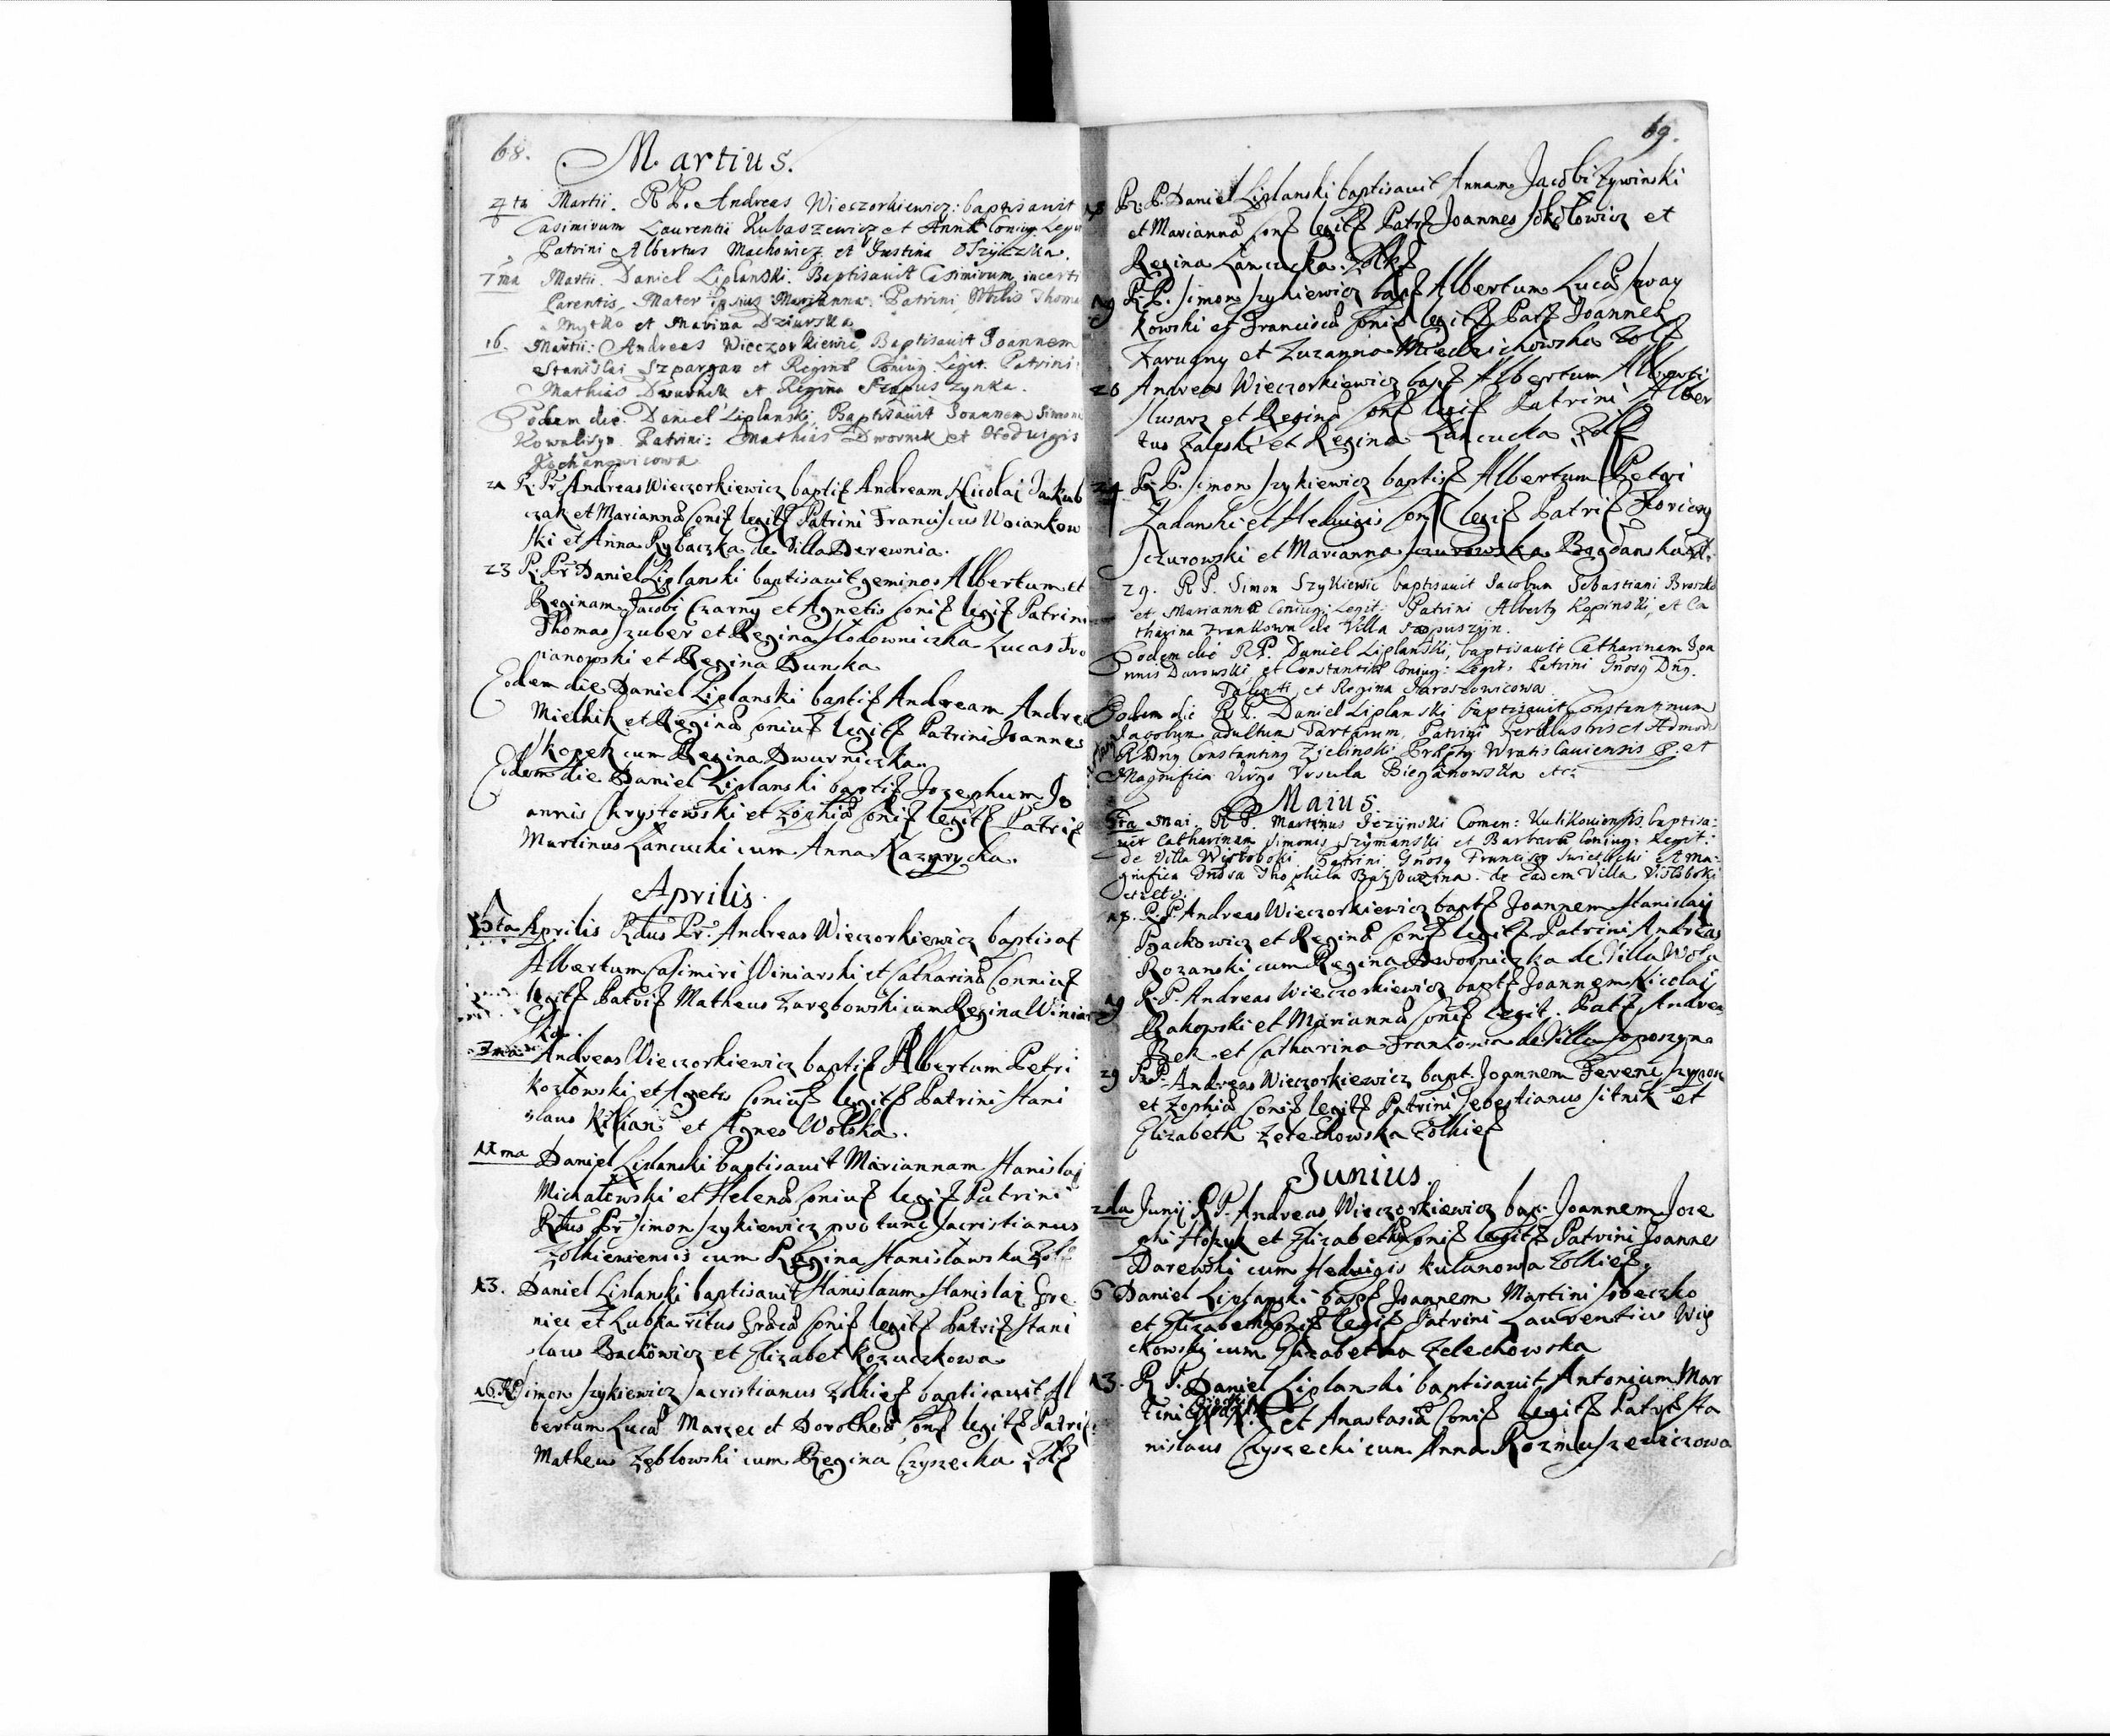 68.
Martius.
4ta Martii. R P. Andreas Wieczorkiewicz: baptisavit
Casimirum Laurentii Kubaszewicz et Anna Coniug. Legit
Patrini Albertus Machowicz et Justina
7ma Martii Daniel Liplanski. Baptisavit Casimirum incerti
Parentis, Mater ipsius Marianna. Patrini Thoma
Mytko et Marina Dziurska
16. Martii: Andreas Wieczorkiewic Baptisavit Joannem
Stanislai Szpargaz et Regina Coniug. Legit. Patrini:
Mathias Dwurnik et Regina
Eodem die. Daniel Liplanski Baptisavit Joannem Simonis
Kowaliszyn. Patrini: Mathias Dwornik et Hedvigis
Kochanowicowa
21 R. Pr Andreas Wieczorkiewicz baptis Andream Nicolai Jakub
czak et Marianna Coni legit Patrini Franciscus Woiankow
ski et Anna Rybaczka de Villa Derewnia.
23 R. Pr Daniel Liplanski baptisavit geminos Albertum et
Reginam Jacobi Czarny et Agnetis Coni legit Patrini
Thomas Szuber et Regina Slodowniczka Lucas
ianowski et Regina Dunska
Eodem die Daniel Liplanski baptis Andream Andrea
Mielnik et Regina Coniu legit Patrini Joannes
Skopek cum Regina Dwurniczka
Eodem die Daniel Liplanski baptis Josephum Jo
annis Chrystowski et Zophia Coni legit Patrin
Martinus Lancucki cum Anna
Aprilis.
5ta Aprilis Rdus Pr. Andreas Wieczorkiewicz baptisat
Albertum Casimiri Winiarski et Catharina Conniu
legit Patrin Matheus Zarębowski cum Regina Winiar
ska.
7ma Andreas Wieczorkiewicz baptis Albertum Petri
Kozłowski et Agnetis Coniu legit Patrini Stani
slaus Kilian et Agnes Wolska.
11ma Daniel Liplanski baptisavit Mariannam Stanislai
Michałowski et Helena Coniu legit Patrini
Rdus Pr Simon Szykiewicz pro tunc Sacristianus
Zolkieviensis cum Regina Stanisławska Zolk
13. Daniel Liplanski baptisavit Stanislaum Stanislai Gre
niec et Lubka ritus Graeca Coni legit Patrin Stani
slaus Backowicz et Elizabet Kozuczkowa
16. RP Simon Szykiewicz Sacristianus Zolkie baptisavit Al
bertum Luca Marzec et Dorothea Coni legit Patrin
Matheus Zębłowski cum Regina Czyszecka Zolk
69.
18 R. P. Daniel Liplanski baptisavit Annam Jacobi Zywinski
et Marianna Coni legit Patri Joannes Sokołowicz et
Regina Lancucka Zolk
19 R. P. Simon Szykiewicz bapt Albertum Luca
kowski et Francisca Coni legit Patr Joannes
et Zuzanna Miedzichowska Zolk
20 Andreas Wieczorkiewicz bapt Albertum Alberti
Slusarz et Regina Coni legit Patrini Alber
tus Zaleski et Regina Lancucka Zolk
24 R. P. Simon Szykiewicz baptis Albertum Petri
Zadanski et Hedvigis Coni legit Patrin Florian
Sczurowski et Marianna Sczurowska Bogdanska
29. R P. Simon Szykiewic baptisavit Jacobum Sebastiani
et Marianna Coniug: Legit: Patrini Albertg Kopinski, et Ca
tharina Frankowa de Villa Sopuszyn.
Eodem die R P. Daniel Liplanski, baptisavit Catharinam Joa
nnis Darowski, et Constantia Coniug: Legit: Patrini Gnosg Dng.
Talenti, et Regina Jaroszowicowa
Eodem die R P. Daniel Liplanski baptisavit Constantinum
Jacobum adultum Tartarum, Patrini Perillustris et Admod
R Dng Constanting Zielinski Wratislaviensis et
Magnifica Virgo Ursula Bieganowska etc:
Maius.
Mai. R P. Martinus Jezynski Comen: Kulikoviensis baptisa:
vit Catharinam Simonis Szymanski et Barbara Coniug: Legit:
de Villa Wisłoboki. Patrini Gnosg Francisg et Ma:
gnifica Dnosa Theophila de eadem Villa Visłoboki
etc etc:
18. R. P. Andreas Wieczorkiewicz bapt Joannem Stanislai
Backowicz et Regina Coni legit Patrini Andreas
Rozanski cum Regina Dworniczka de Villa Wola
19 R. P. Andreas Wieczorkiewicz bapt Joannem Nicolai
Bakowski et Marianna Coni legit. Patr Andrea
Bek et Catharina Frankowa de Villa Soposzyn
29 R. P. Andreas Wieczorkiewicz bapt. Joannem
et Zophia Coni legit Patrini Sebestianus Sitnik et
Elizabeth Zelechowska Zolkie
Junius
2da Junij R P. Andreas Wieczorkiewicz bap. Joannem Joze
phi et Elizabetha Coni legit Patrini Joannes
Darewski cum Hedvigis Kulanowa Zolkie
6 Daniel Liplanski bapt Joannem Martini Sobeczko
et Elizabeth Coni legit Patrini Laurentius
ckowski cum Elizabetha Zelechowska
13. R P. Daniel Liplanski baptisavit Antonium Mar
tini et Anastasia Coni legit Patri Sta
nislaus Czyszecki cum Anna Rozmuszewiczowa